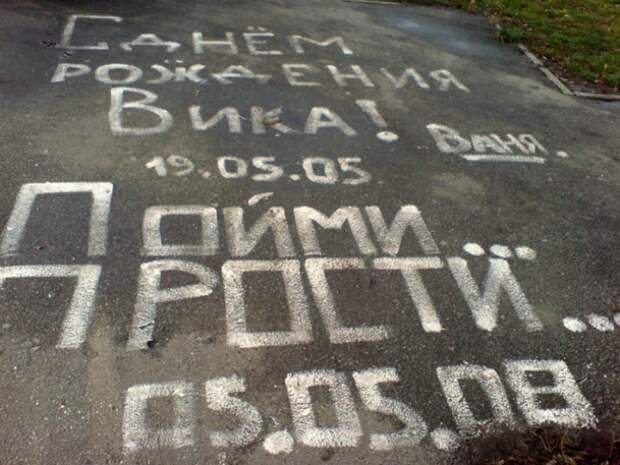 С днём
рождения
Вика!
Ваня.
19.05.05
Пойми...
Прости...
05.05.08